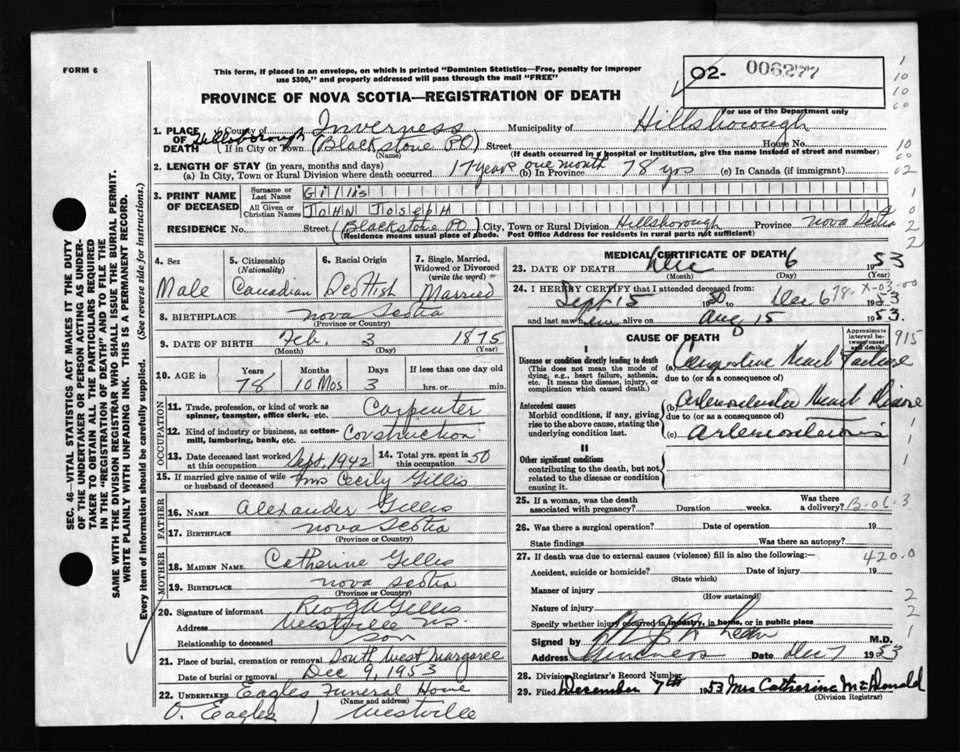 FORM 6
This form, if placed in an envelope, on which is printed "Dominion Statistics—Free, penalty for improper
use $300," and properly addressed will pass through the mail "FREE"
O2- 006277
PROVINCE OF NOVA SCOTIA—REGISTRATION OF DEATH
For use of the Department only
1. PLACE OF DEATH County of Inverness Municipality of Hillsborough
Hillsborough (If in City or Town (Blackstone P.O.) Street House No.
(Name) (If death occurred in a hospital or institution, give the name instead of street and number)
2. LENGTH OF STAY (in years, months and days)
(a) In City, Town or Rural Division where death occurred 17 years one month (b) In Province 78 yrs (c) In Canada (if immigrant)
3. PRINT NAME OF DECEASED Surname or Last Name Gillis
All Given or Christian Names JOHN JOSEPH
RESIDENCE No. Street (Blackstone PO) City, Town or Rural Division Hillsborough Province Nova Scotia
(Residence means usual place of abode. Post Office Address for residents in rural parts not sufficient)
4. Sex Male
5. Citizenship (Nationality) Canadian
6. Racial Origin Scottish
7. Single, Married, Widowed or Divorced (write the word) Married
8. BIRTHPLACE Nova Scotia
(Province or Country)
9. DATE OF BIRTH Feb. 3 1875
(Month) (Day) (Year)
10. AGE in Years 78 Months 10 Mos Days 3 If less than one day old hrs. or min.
OCCUPATION
11. Trade, profession, or kind of work as spinner, teamster, office clerk, etc. Carpenter
12. Kind of industry or business, as cotton-mill, lumbering, bank, etc. Construction
13. Date deceased last worked at this occupation Sept, 1942 14. Total yrs. spent in this occupation 50
15. If married give name of wife or husband of deceased Mrs Cecily Gillis
FATHER
16. NAME Alexander Gillis
17. BIRTHPLACE Nova Scotia
(Province or Country)
MOTHER
18. MAIDEN NAME Catherine Gillis
19. BIRTHPLACE Nova Scotia
(Province or Country)
20. Signature of informant Gillis
Address Westville N.S.
Relationship to deceased Son
21. Place of burial, cremation or removal South West Margaree
Date of burial or removal Dec 9, 1953
22. UNDERTAKER Eagles Funeral Home
(Name and address)
O. Eagles / Westville
MEDICAL CERTIFICATE OF DEATH
23. DATE OF DEATH Dec 6 1953
(Month) (Day) (Year)
24. I HEREBY CERTIFY that I attended deceased from:
Sept 15 1950 to Dec 6 1953
and last saw him alive on Aug 15 1953.
78-X-03-00
CAUSE OF DEATH
Approximate interval between onset and death
I
Disease or condition directly leading to death (This does not mean the mode of dying, e.g., heart failure, asthenia, etc. It means the disease, injury, or complication which caused death.)
(a) Congestive Heart Failure
due to (or as a consequence of)
Antecedent causes
Morbid conditions, if any, giving rise to the above cause, stating the underlying condition last.
(b) Arteriosclerotic Heart Disease
due to (or as a consequence of)
(c) Arteriosclerosis
II
Other significant conditions contributing to the death, but not related to the disease or condition causing it.
25. If a woman, was the death associated with pregnancy? Duration weeks. Was there a delivery? B-06-3
26. Was there a surgical operation? Date of operation 19
State findings Was there an autopsy?
27. If death was due to external causes (violence) fill in also the following:— 420.0
Accident, suicide or homicide? Date of injury 19
(State which)
Manner of injury
(How sustained)
Nature of injury
Specify whether injury occurred in industry, in home, or in public place
Signed by M.D.
Address Inverness Date Dec 7 1953
28. Division Registrar's Record Number
29. Filed December 7th 1953 Mrs Catherine McDonald
(Division Registrar)
SEC. 46—VITAL STATISTICS ACT MAKES IT THE DUTY
OF THE UNDERTAKER OR PERSON ACTING AS UNDER-
TAKER TO OBTAIN ALL THE PARTICULARS REQUIRED
IN THE "REGISTRATION OF DEATH" AND TO FILE THE
SAME WITH THE DIVISION REGISTRAR WHO SHALL ISSUE THE BURIAL PERMIT.
WRITE PLAINLY WITH UNFADING INK. THIS IS A PERMANENT RECORD.
Every item of information should be carefully supplied. (See reverse side for instructions.)